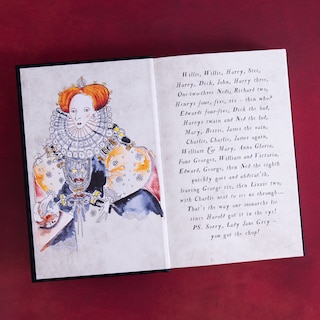 Willie, Willie, Harry, Stee,
Harry, Dick, John, Harry three,
One-two-three Neds, Richard two,
Henrys four, five, six – then who?
Edwards four-five, Dick the bad,
Harrys twain and Ned the lad,
Mary, Bessie, James the vain,
Charlie, Charlie, James again,
William & Mary, Anna Gloria,
Four Georges, William and Victoria,
Edward, George, then Ned the eighth
quickly goes and abdicat'th,
leaving George six, then Lizzie two,
with Charlie next to see us through –
That's the way our monarchs lie
since Harold got it in the eye!
PS. Sorry, Lady Jane Grey –
you got the chop!